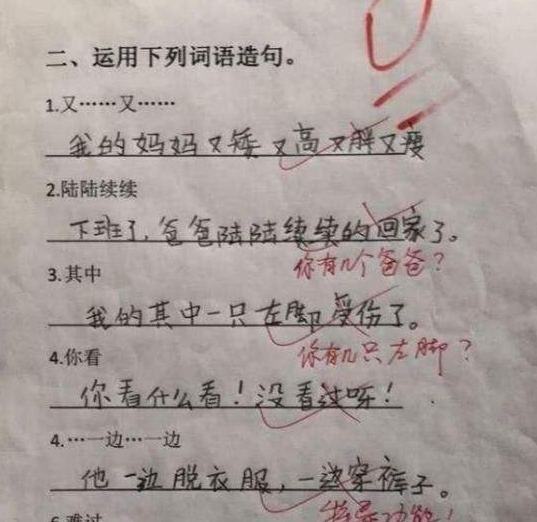 二、运用下列词语造句。
1.又……又……
我的妈妈又矮又高又胖又瘦
2.陆陆续续
下班了，爸爸陆陆续续的回家了。
你有几个爸爸？
3.其中
我的其中一只左脚受伤了。
你有几只左脚？
4.你看
你看什么看！没看过呀！
4.…一边…一边
他一边脱衣服，一边穿裤子。
特异功能！
6.难过